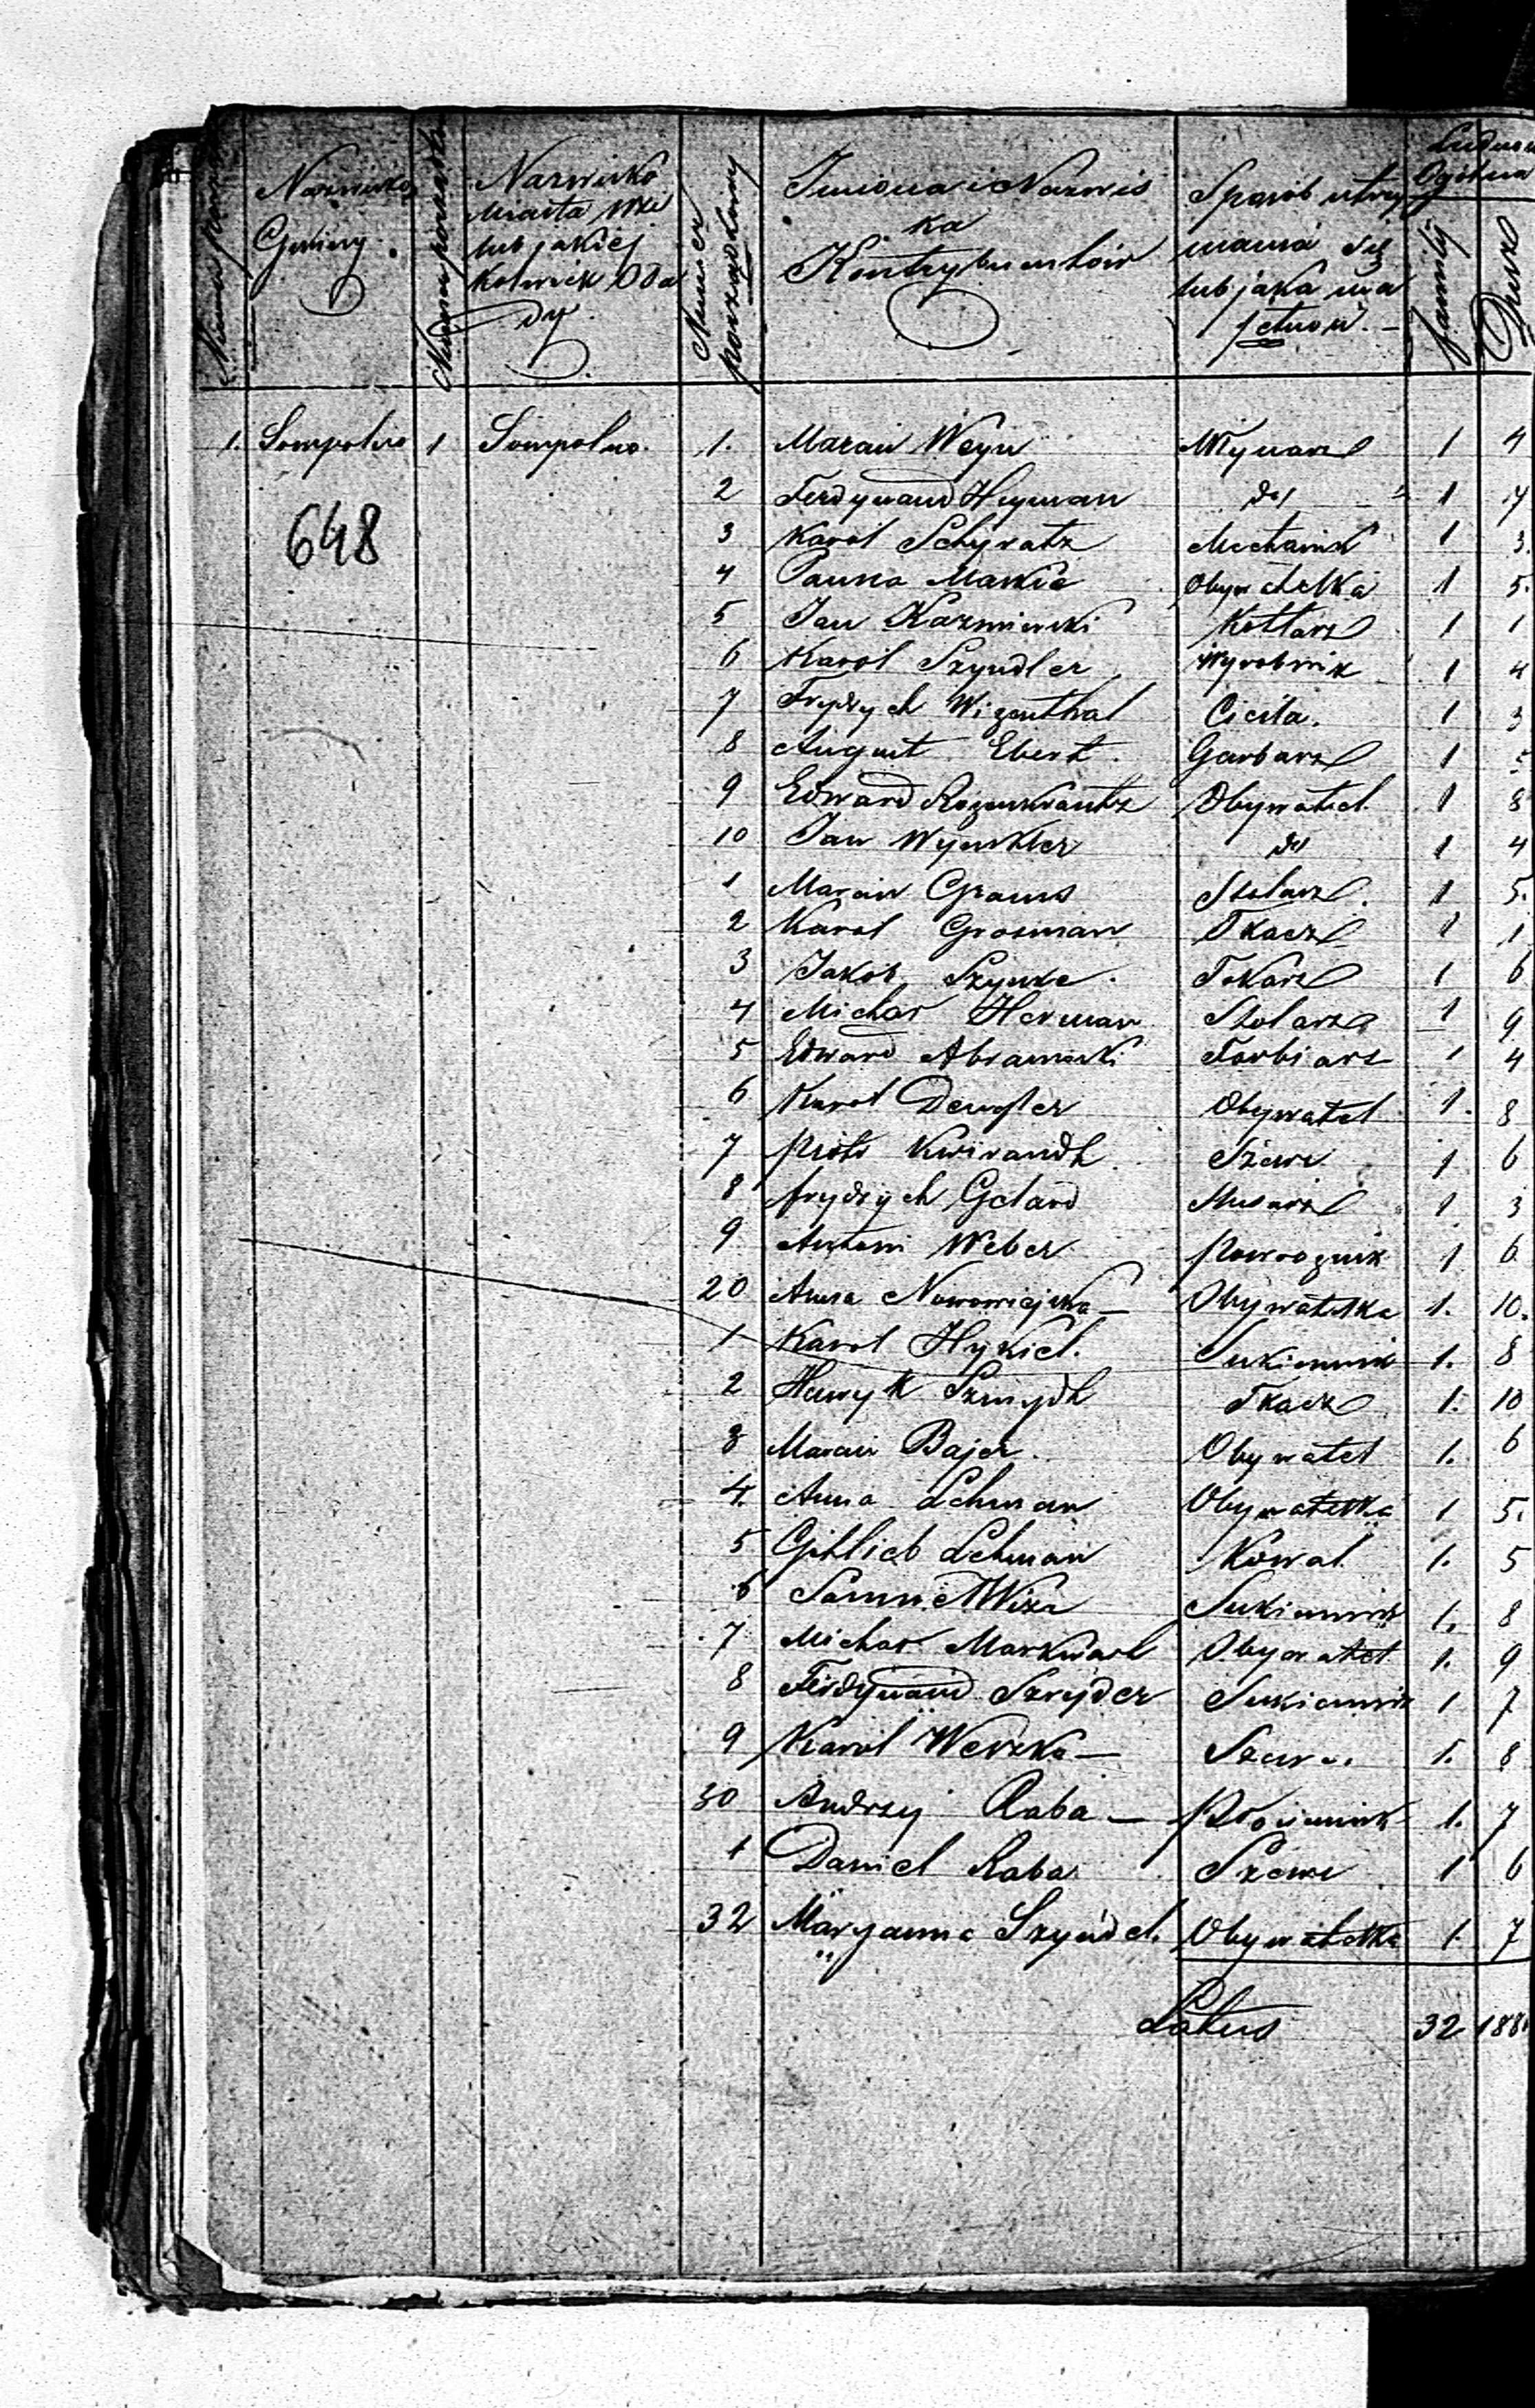 Nazwisko
Gminy
Nazwisko
Miasta Wsi
lub jakiej
kolwiek Osa
dy
Numer
porządkowy
Imiona i Nazwis
ka
Kontrybuentów
Sposób utrzy
mania się
lub jaka ma
Ogólna
familij
Dusz
1. Sompolno 1 Sompolno. 1. Marcin Weyn Młynarz 1 4
2 Ferdynand Heyman do 1 7
3 Karol Schyratz Mechanik 1 3.
4 Panna Obywatelka 1 5.
5 Jan Kazmierski Kotlarz 1 1
6 Karol Szyndler Wyrobnik 1 4
7 Frydrych Wizenthal Cieśla. 1 3
8 August Ebert. Garbarz 1
9 Edward Rozenkrantz Obywatel 1 8
10 Jan Wynkler do 1 4
1 Marcin Grams Stolarz. 1 5.
2 Karol Grosman Tkacz 1 1
3 Jakób Szynke. Tokarz 1 6
4 Michał Herman Stolarz 1 9
5 Edward Abramowski Farbiarz 1 4
6 Karol Obywatel 1. 8
7 Piotr Kwirandt Szewc 1 6
8 Frydrych Gelard 1 3
9 Antoni Weber Powroznik 1 6
20 Anna Nowowiejska — Obywatelka 1. 10.
1 Karol Hykiel. Sukiennik 1. 8
2 Henryk Szmydt Tkacz 1. 10
3 Marcin Bajer. Obywatel 1. 6
4. Anna Lehman Obywatelka 1 5.
5 Gotlieb Lehman Kowal 1. 5
6 Samuel Wiza Sukiennik 1. 8
7 Michał Markwart Obywatel 1. 9
8 Ferdynand Sznyder Sukiennik 1 7
9 Karol Werzka — Szewc. 1. 8
30 Andrzej Raba — Płóciennik 1. 7
1 Daniel Raba Szewc 1 6
32 Maryanna Szyndel. Obywatelka 1. 7
Latus 32 188
648